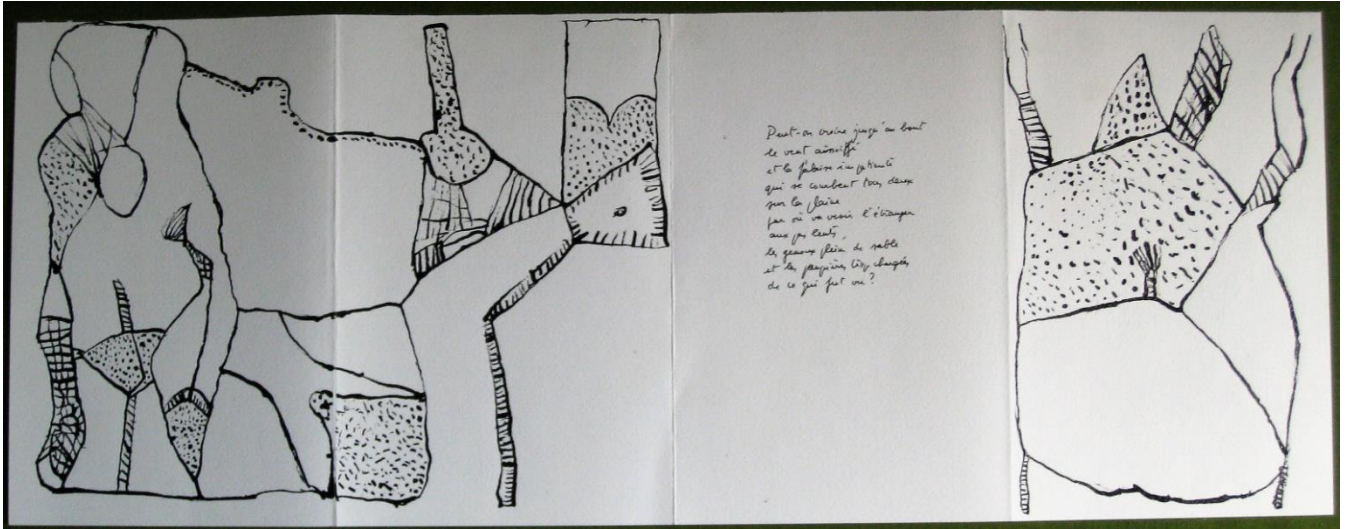 Peut-on croire jusqu'au bout
le vent
et la falaise
qui se courbent tous deux
sur la plaine
par où va venir l'étranger
aux pas lents,
les genoux plein de sable
et les paupières trop chargées
de ce qui fut vu ?